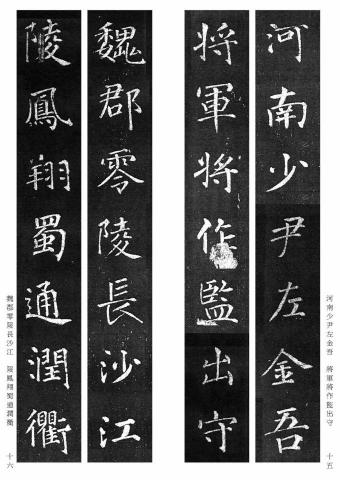 河南少尹左金吾
将軍将作監出守
河南少尹左金吾　將軍將作監出守
十五
魏郡零陵長沙江
陵鳳翔蜀通潤衢
魏郡零陵長沙江　陵鳳翔蜀通潤衢
十六